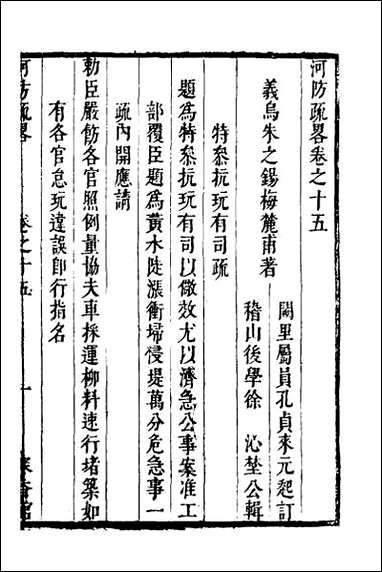 河防疏畧卷之十五
義烏朱之錫梅麓甫著
闕里屬員孔貞來元起訂
稽山後學徐　沁埜公輯
特叅抗玩有司疏
題為特叅抗玩有司以儆效尤以濟急公事案准工
部覆臣題為黃水陡漲衝埽侵堤萬分危急事一
疏內開應請
勅臣嚴飭各官照例量協夫車採運柳料速行堵築如
有各官怠玩違誤即行指名
河防疏畧
卷之十五
一